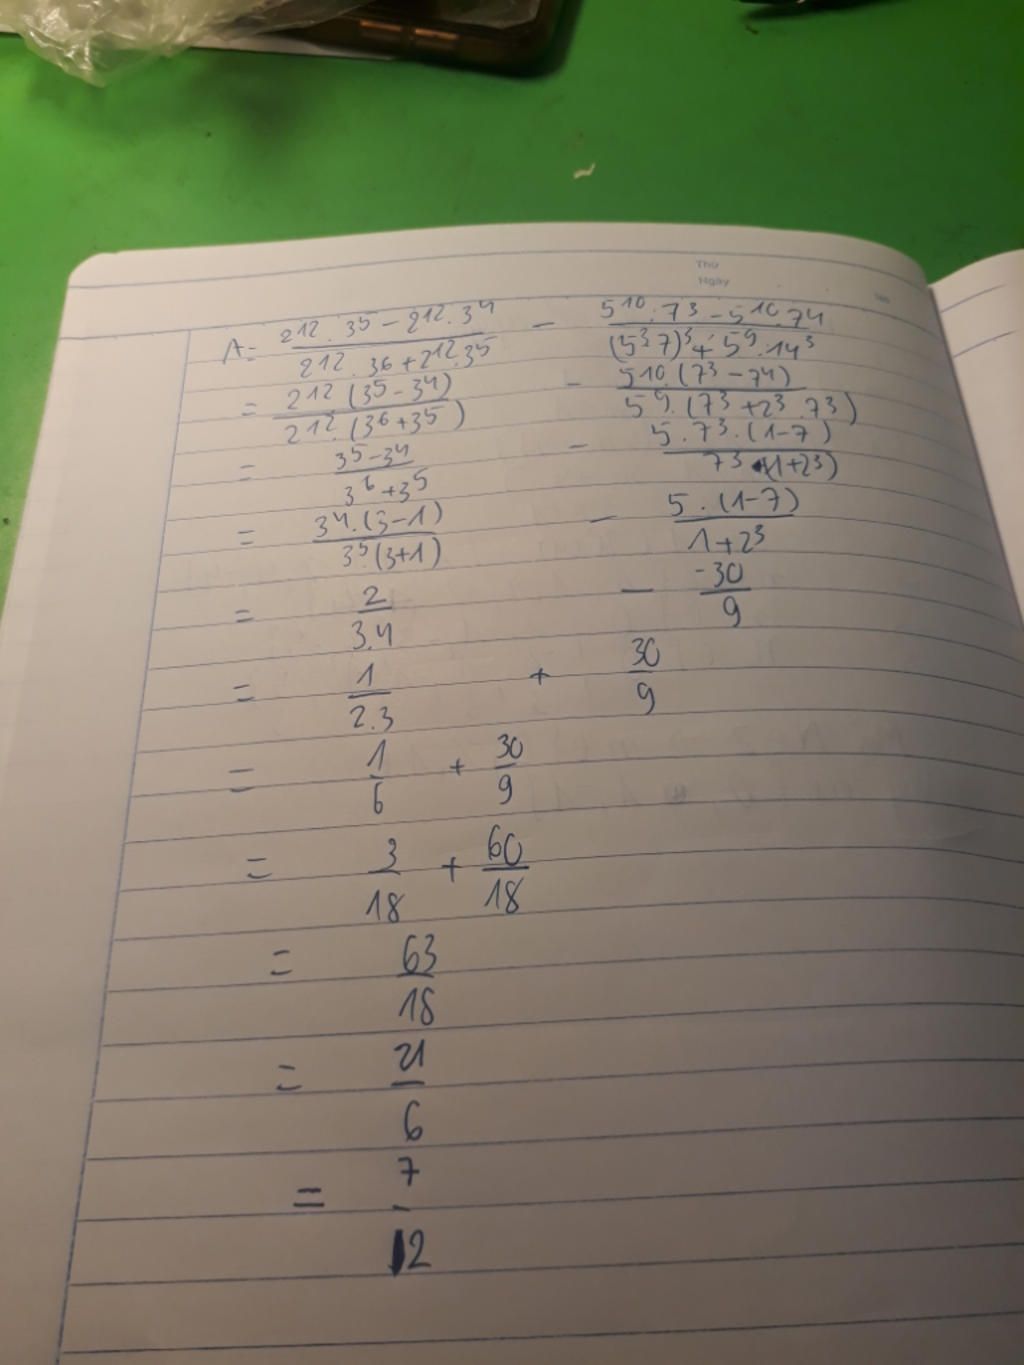 Thứ
Ngày
No
A = \frac{2^{12}.3^5 - 2^{12}.3^4}{2^{12}.3^6 + 2^{12}.3^5} - \frac{5^{10}.7^3 - 5^{10}.7^4}{(5^3 7)^3 + 5^9.14^3}
= \frac{2^{12}.(3^5 - 3^4)}{2^{12}.(3^6 + 3^5)} - \frac{5^{10}.(7^3 - 7^4)}{5^9.(7^3 + 2^3.7^3)}
= \frac{3^5 - 3^4}{3^6 + 3^5} - \frac{5.7^3.(1-7)}{7^3.(1+2^3)}
= \frac{3^4.(3-1)}{3^5.(3+1)} - \frac{5.(1-7)}{1+2^3}
= \frac{2}{3.4} - \frac{-30}{9}
= \frac{1}{2.3} + \frac{30}{9}
= \frac{1}{6} + \frac{30}{9}
= \frac{3}{18} + \frac{60}{18}
= \frac{63}{18}
= \frac{21}{6}
= \frac{7}{2}